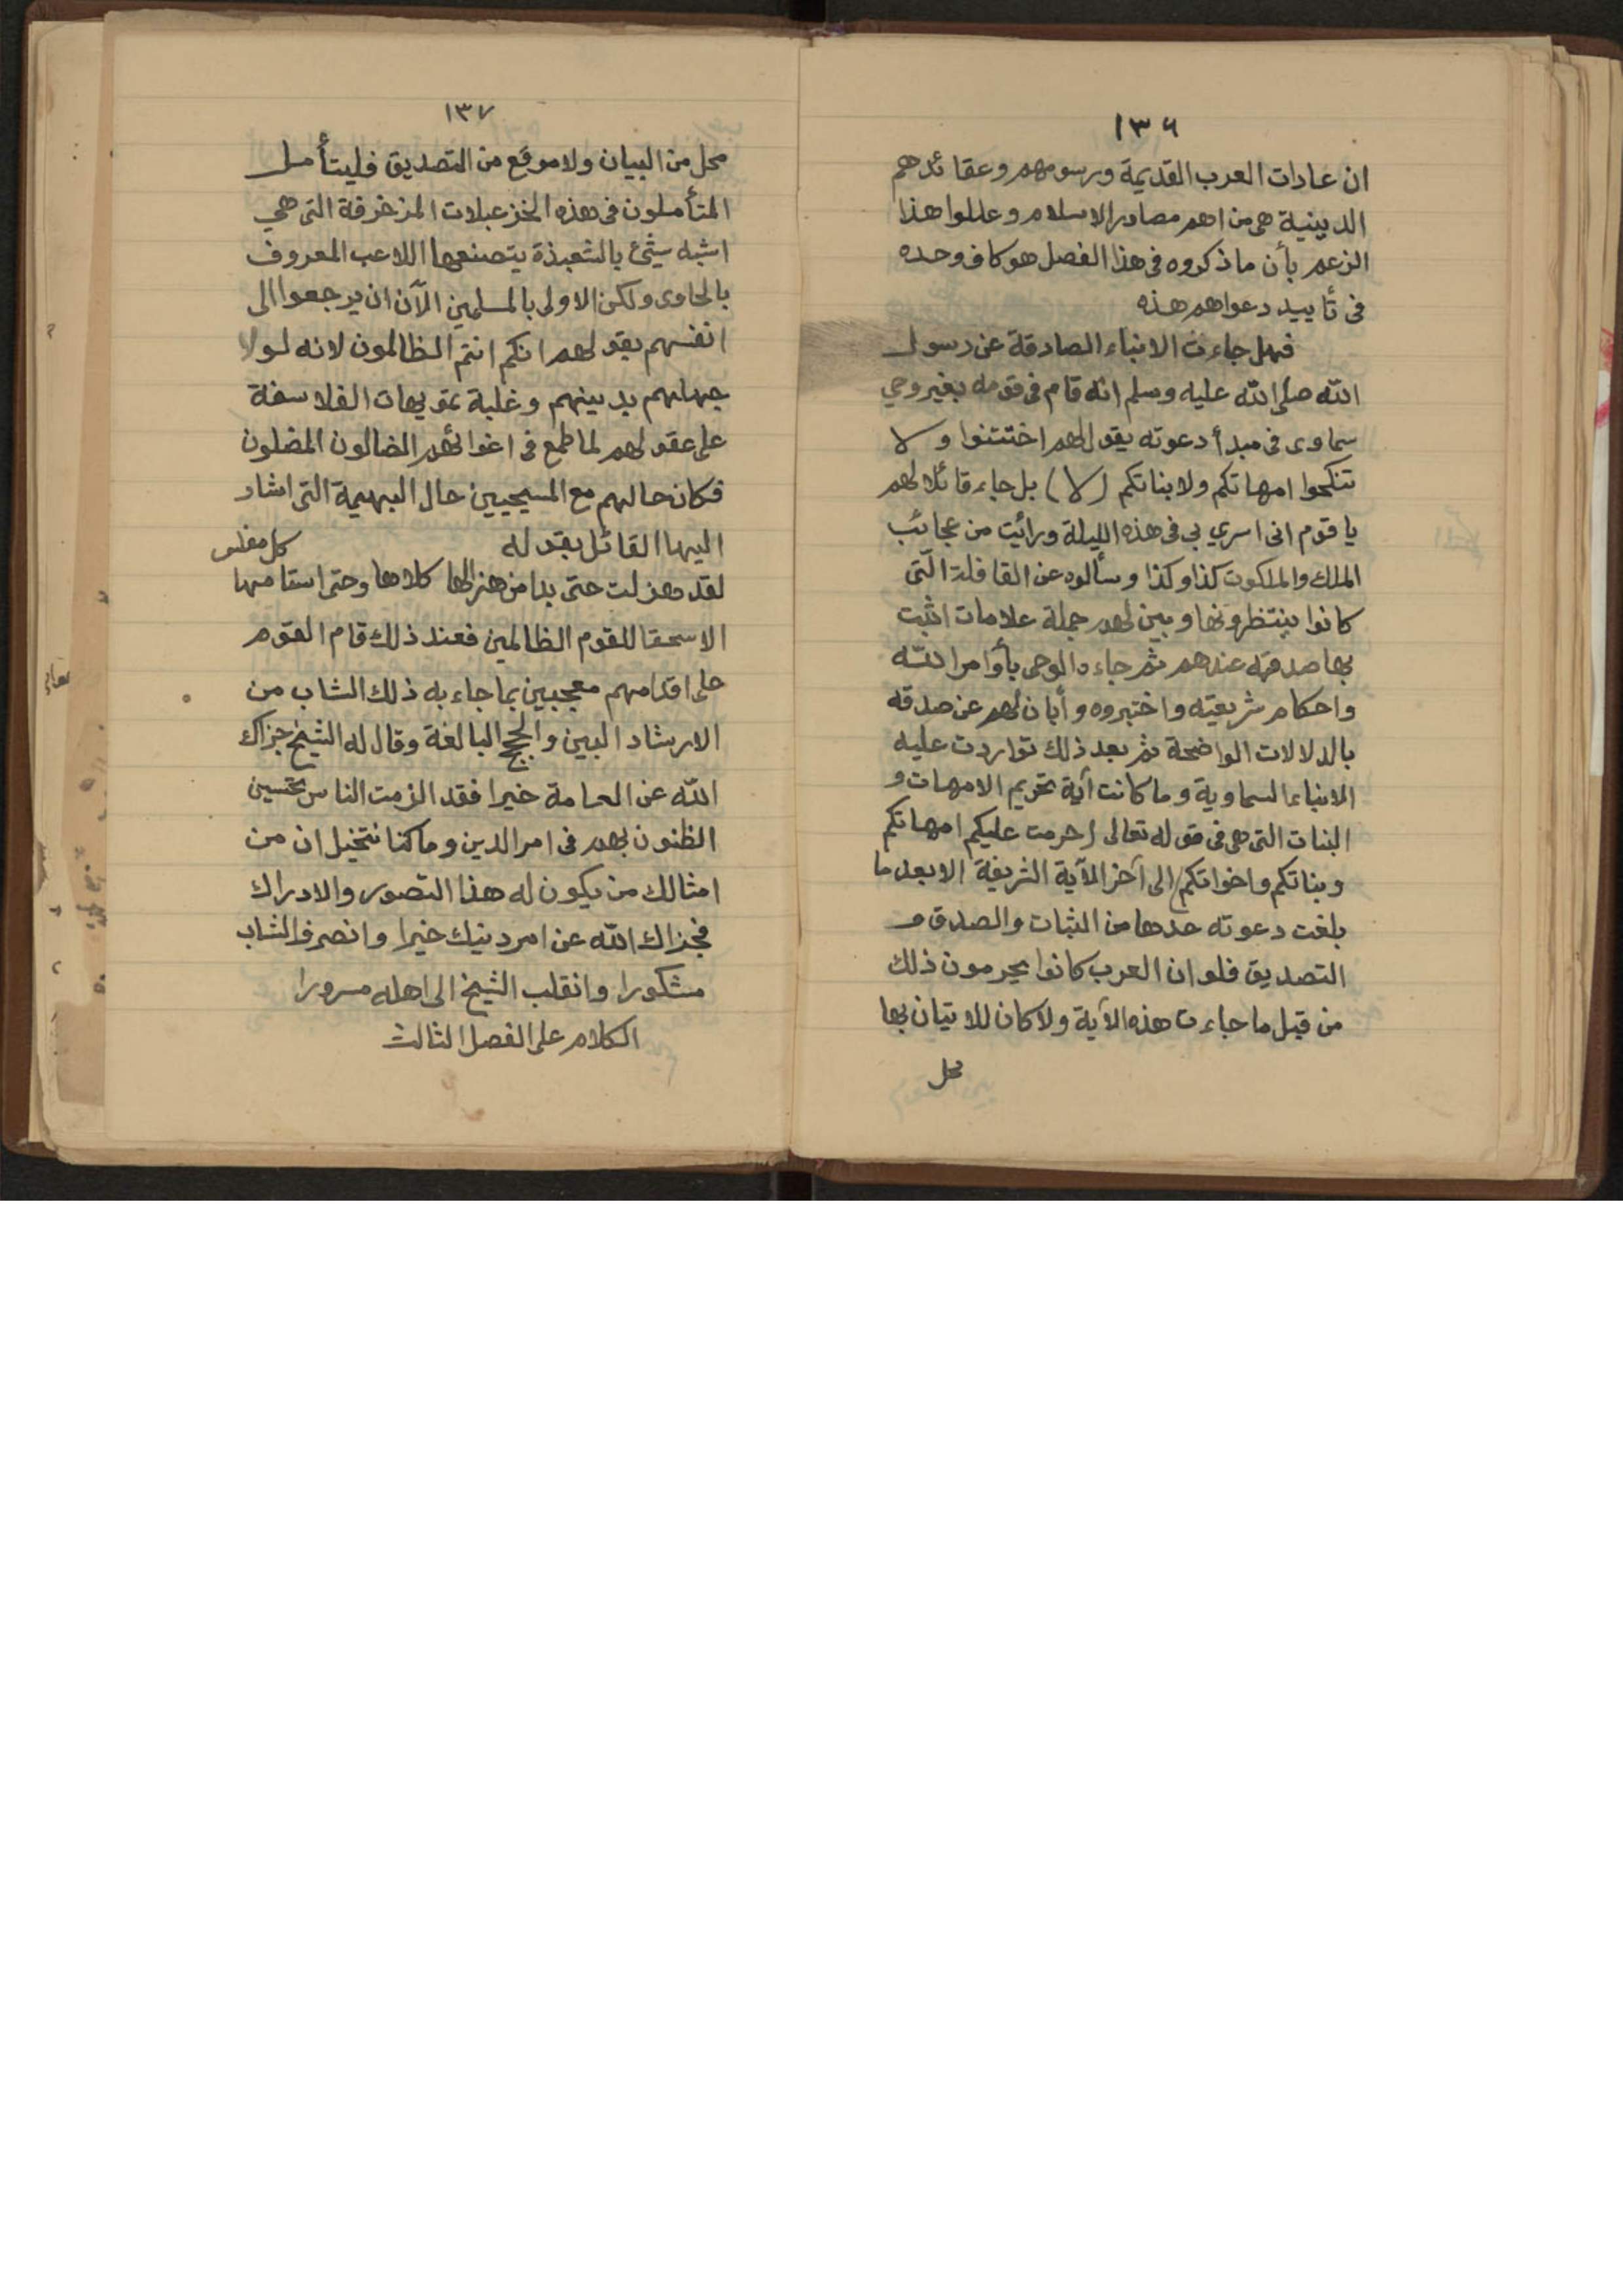 ١٣٦
ان عادات العرب القديمة ورسومهم وعقائدهم
الدينية هى من اهم مصادر الاسلام وعللوا هذا
الزعم بأن ما ذكروه فى هذا الفصل هو كاف وحده
فى تأييد دعواهم هذه
فهل جاءت الانباء الصادقة عن رسول
الله صلى الله عليه وسلم انه قام فى قومه بغير وحي
سماوى فى مبدأ دعوته يقول لهم اختتنوا ولا
تنكحوا امهاتكم ولا بناتكم (لا) بل جاء قائلا لهم
يا قوم انى اسري بي فى هذه الليلة ورائيت من عجائب
الملك والملكوت كذا وكذا وسألوه عن القافلة التى
كانوا ينتظرونها وبين لهم جملة علامات اثبت
بها صدقه عندهم ثم جاءه الوحى بأوامر الله
واحكام شريعته واختبروه وأبان لهم عن صدقه
بالدلالات الواضحة ثم بعد ذلك تواردت عليه
الانباء السماوية وما كانت آية تحريم الامهات و
البنات التى هى فى قوله تعالى (حرمت عليكم امهاتكم
وبناتكم واخواتكم) الى آخر الآية الشريفة الا بعد ما
بلغت دعوته حدها من الثبات والصدق و
التصديق فلو ان العرب كانوا يحرمون ذلك
من قبل ما جاءت هذه الآية ولا كان للاتيان بها
محل
١٣٧
محل من البيان ولا موقع من التصديق فليتأمل
المتأملون فى هذه الخزعبلات المزخرفة التى هي
اشبه شيئ بالشعبذة يتصنعها اللاعب المعروف
بالحاوى ولكن الاولى بالمسلمين الآن ان يرجعوا الى
انفسهم يقولهم انكم انتم الظالمون لانه لولا
جهلهم بدينهم وغلبة تمويهات الفلاسفة
على عقولهم لما طمع فى اغوائهم الضالون المضلون
فكان حالهم مع المسيحيين حال البهيمة التى اشار
اليها القائل بقوله
لقد هزلت حتى بدا من هزالها كلاها وحتى استامها كل مفلس
الا سحقا للقوم الظالمين فعند ذلك قام القوم
على اقدامهم معجبين بما جاء به ذلك الشاب من
الارشاد البين والحجج البالغة وقال له الشيخ جزاك
الله عن العامة خيرا فقد الزمت الناس تحسين
الظنون بهم فى امر الدين وما كنا نتخيل ان من
امثالك من يكون له هذا التصور والادراك
فجزاك الله عن امر دينك خيرا وانصرف الشاب
مشكورا وانقلب الشيخ الى اهله مسرورا
الكلام على الفصل الثالث